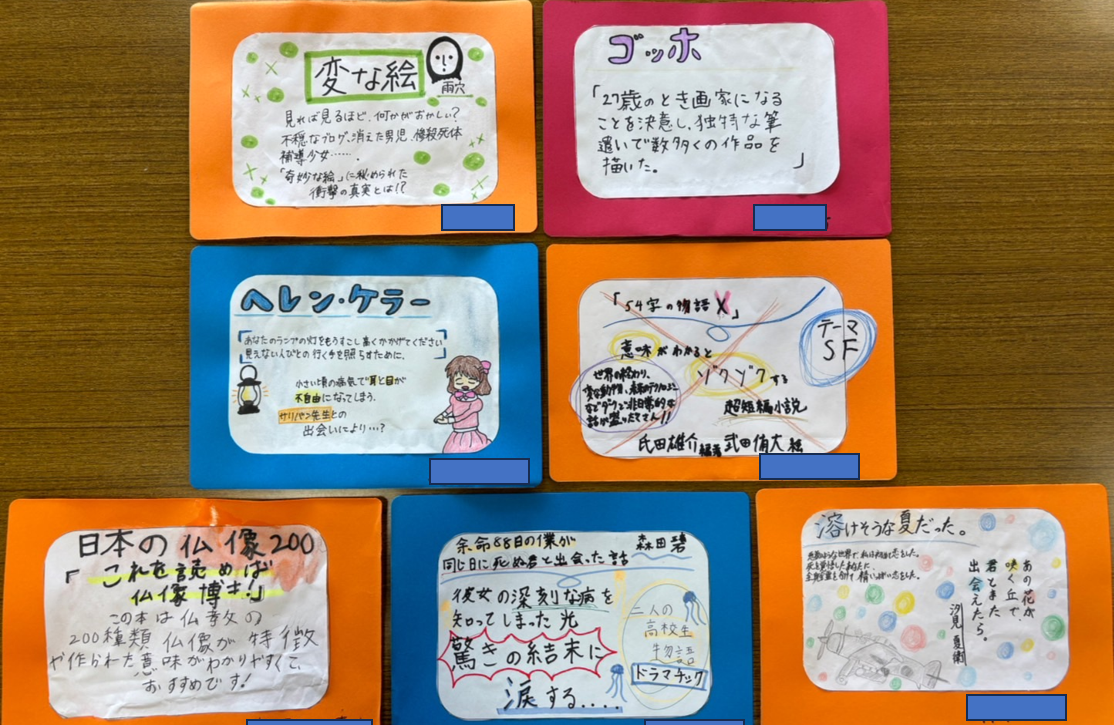 変な絵
雨穴
見れば見るほど、何かがおかしい?
不穏なブログ、消えた男児、惨殺死体
補導少女……。
「奇妙な絵」に秘められた
衝撃の真実とは!?
ゴッホ
「27歳のとき画家になる
ことを決意し、独特な筆
遣いで数多くの作品を
描いた。」
ヘレン・ケラー
あなたのランプの灯をもうすこし高くかかげてください
見えない人びとの行く手を照らすために。
小さい頃の病気で耳と目が
不自由になってしまう。
サリバン先生との
出会いにより…?
「54字の物語X」
テーマ
SF
意味がわかると
ゾクゾクする
超短編小説
世界の終わり、
変な動物、未来のテクノロジー
などダークで非日常的な
話が盛りだくさん!!
氏田雄介 編著 武田侑大 絵
日本の仏像200
「これを読めば
仏像博士」
この本は仏教の
200種類 仏像が特徴
や作られた意味がわかりやすくて
おすすめです!
余命88日の僕が
同じ日に死ぬ君と出会った話
森田碧
彼女の深刻な病を
知ってしまった光
驚きの結末に
涙する....
二人の
高校生
物語
ドラマチック
溶けそうな夏だった。
あの花が
咲く丘で、
君とまた
出会えたら。
汐見夏衛